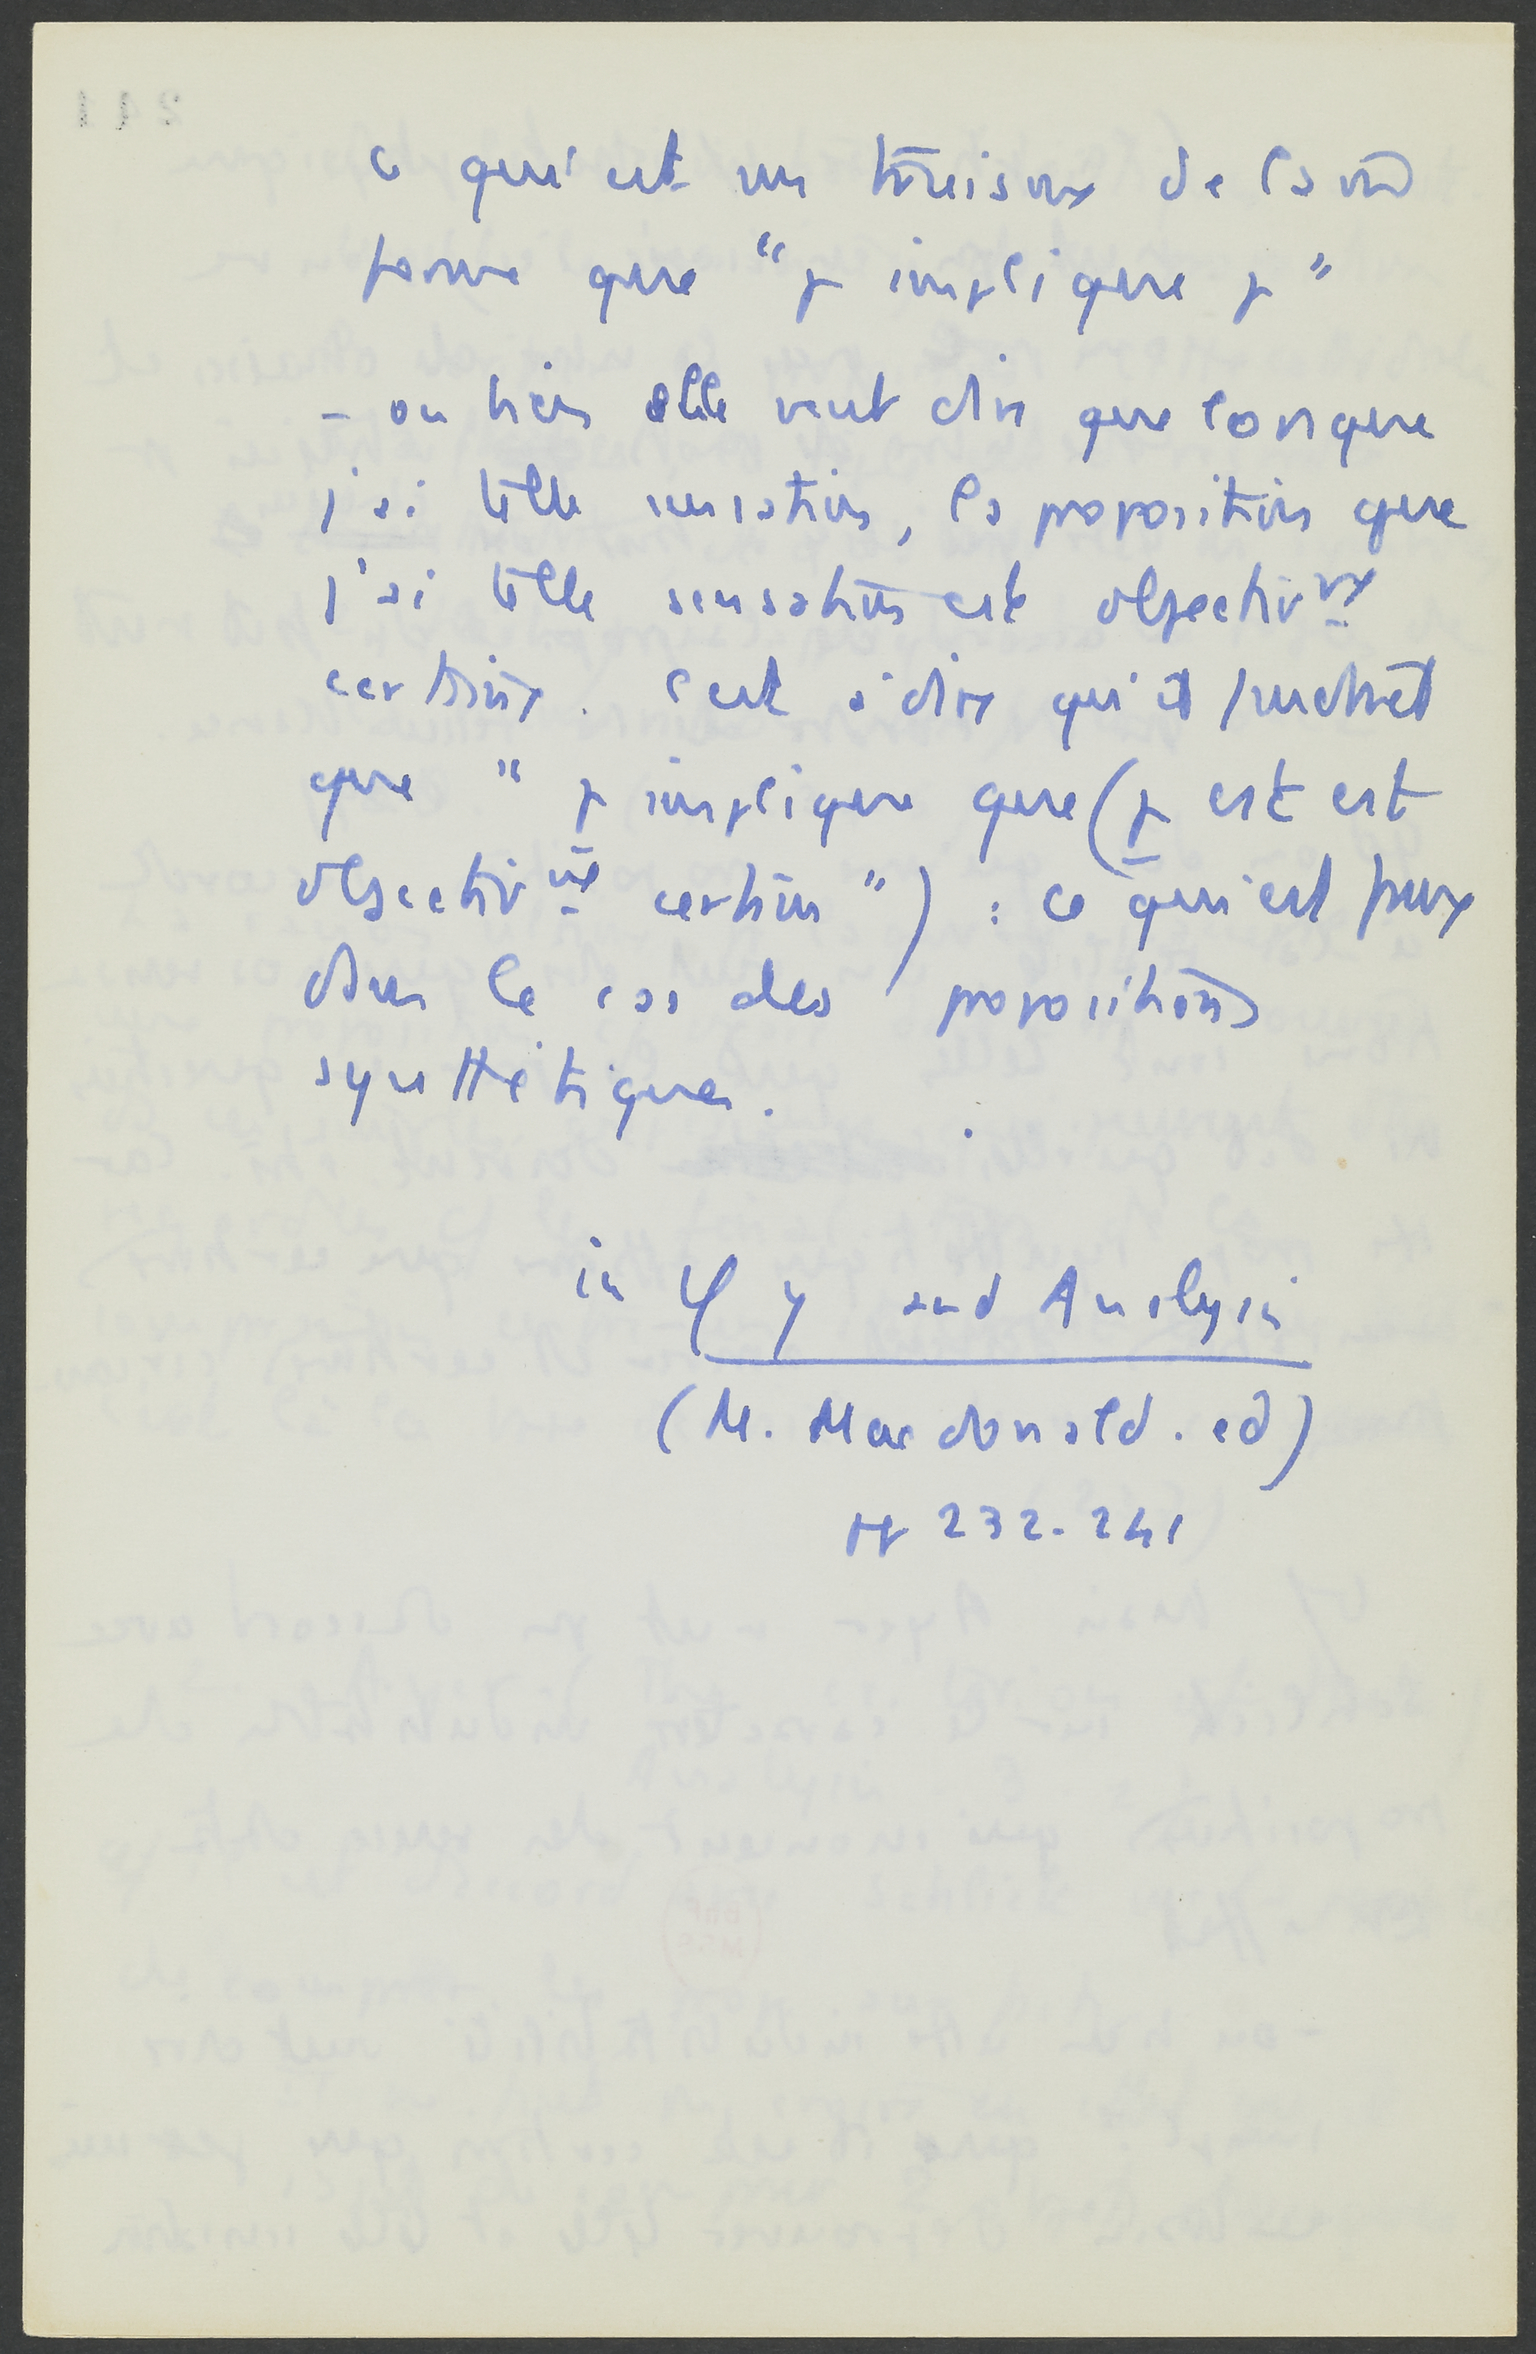 ce qui est un truisme de la même
forme que "p implique p"
- ou bien elle veut dire que lorsque
j'ai telle sensation, la proposition que
j'ai telle sensation est objectivme
certaine. C'est à dire qu'il /
que "p implique que (p est est
objectivme certain") : ce qui est faux
dans le cas des propositions
synthétiques.
in φy and Analysis
(M. Macdonald. ed)
pp 232-241